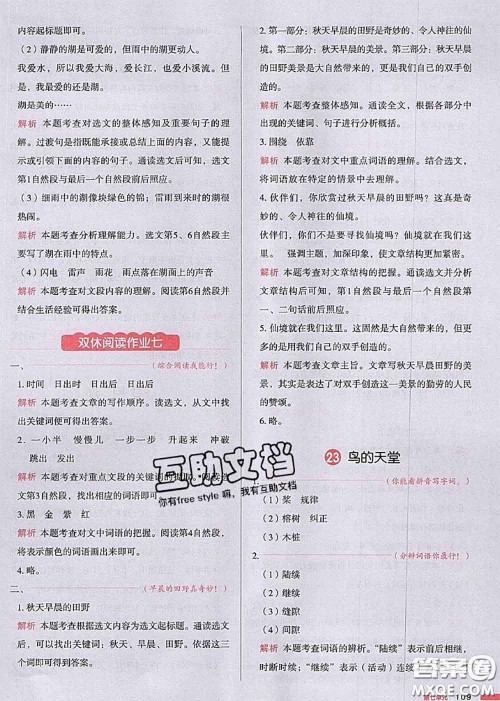 内容起标题即可。
（2）静静的湖是可爱的，但雨中的湖更动人。
我爱水，所以我爱大海，爱长江，也爱小溪流。但是，我最爱的还是湖。
湖是美的……
解析 本题考查对选文的整体感知及重要句子的理解。过渡句是指既能承接或总结上面的内容，又能提示或引领下面内容的句子。通读选文，选文第1自然段与最后一个自然段前后照应。
（3）细雨中的湖像块绿色的锦；雷雨到来时的湖很热闹。
解析 本题考查分析理解能力。选文第5、6自然段主要描写了湖在雨中的特点。
（4）闪电 雷声 雨花 雨点落在湖面上的声音
解析 本题考查对文段内容的理解。阅读第6自然段并结合生活经验可得出答案。
双休阅读作业七
一、（综合阅读我能行！）
1. 时间 日出时 日出后 日出前
解析 本题考查文章的写作顺序。读选文，从文中找出关键词便可得出答案。
2. 一小半 慢慢儿 一步一步 升起来 冲破
跳出 发出
解析 本题考查对重点文段的关键词的摘取。阅读选文第3自然段，找出相关词语即可。
3. 黑 金 紫 红
解析 本题考查对文中词语的把握。细读第4自然段，将表示颜色的词语画出来即可。
4. 略。
二、（早晨的田野真奇妙！）
1. 秋天早晨的田野
解析 本题考查根据选文内容为选文起标题。通读选文，可以找出关键词：秋天、早晨、田野。根据这三个词即可得出答案。
2. 第一部分：秋天早晨的田野是奇妙的、令人神往的仙境。第二部分：秋天早晨的美景。第三部分：秋天早晨的田野美景是大自然带来的，更是我们自己的双手创造的。
解析 本题考查整体感知。通读全文，根据各部分中出现的关键词、句子进行分析概括。
3. 围绕 依靠
解析 本题考查对文中重点词语的理解。结合选文，将词语放在特定的情境中去理解。
4. 伙伴们，你欣赏过秋天早晨的田野吗？这真是奇妙的、令人神往的仙境。
伙伴们，你要寻找仙境吗？仙境就在我们自己的双手里！ 强调主题，加深印象，使文章结构更加紧密。
解析 本题考查对文章结构的把握。通读选文并分析文章结构，可知选文最后一个自然段与第1自然段的第一、二句话前后照应。
5. 仙境就在我们自己的双手里！
解析 本题考查点明文章主旨。文章写秋天早晨田野的美景，主要表现了对用双手创造这一美景的勤劳的人民的赞颂。
6. 略。
23 鸟的天堂
1.（你能看拼音写字词。）
（1）桨 规律
（2）榕树 纠正
（3）木桩 大概
2.（分辨词语你最行！）
（1）陆续
（2）继续
（3）缝隙
（4）间隙
解析 本题考查词语的辨析。“陆续”表示前后相继，时断时续；“继续”表示（活动）连续
互助文档
有free style嘛，我有互助文档
第七单元 109
答案圈